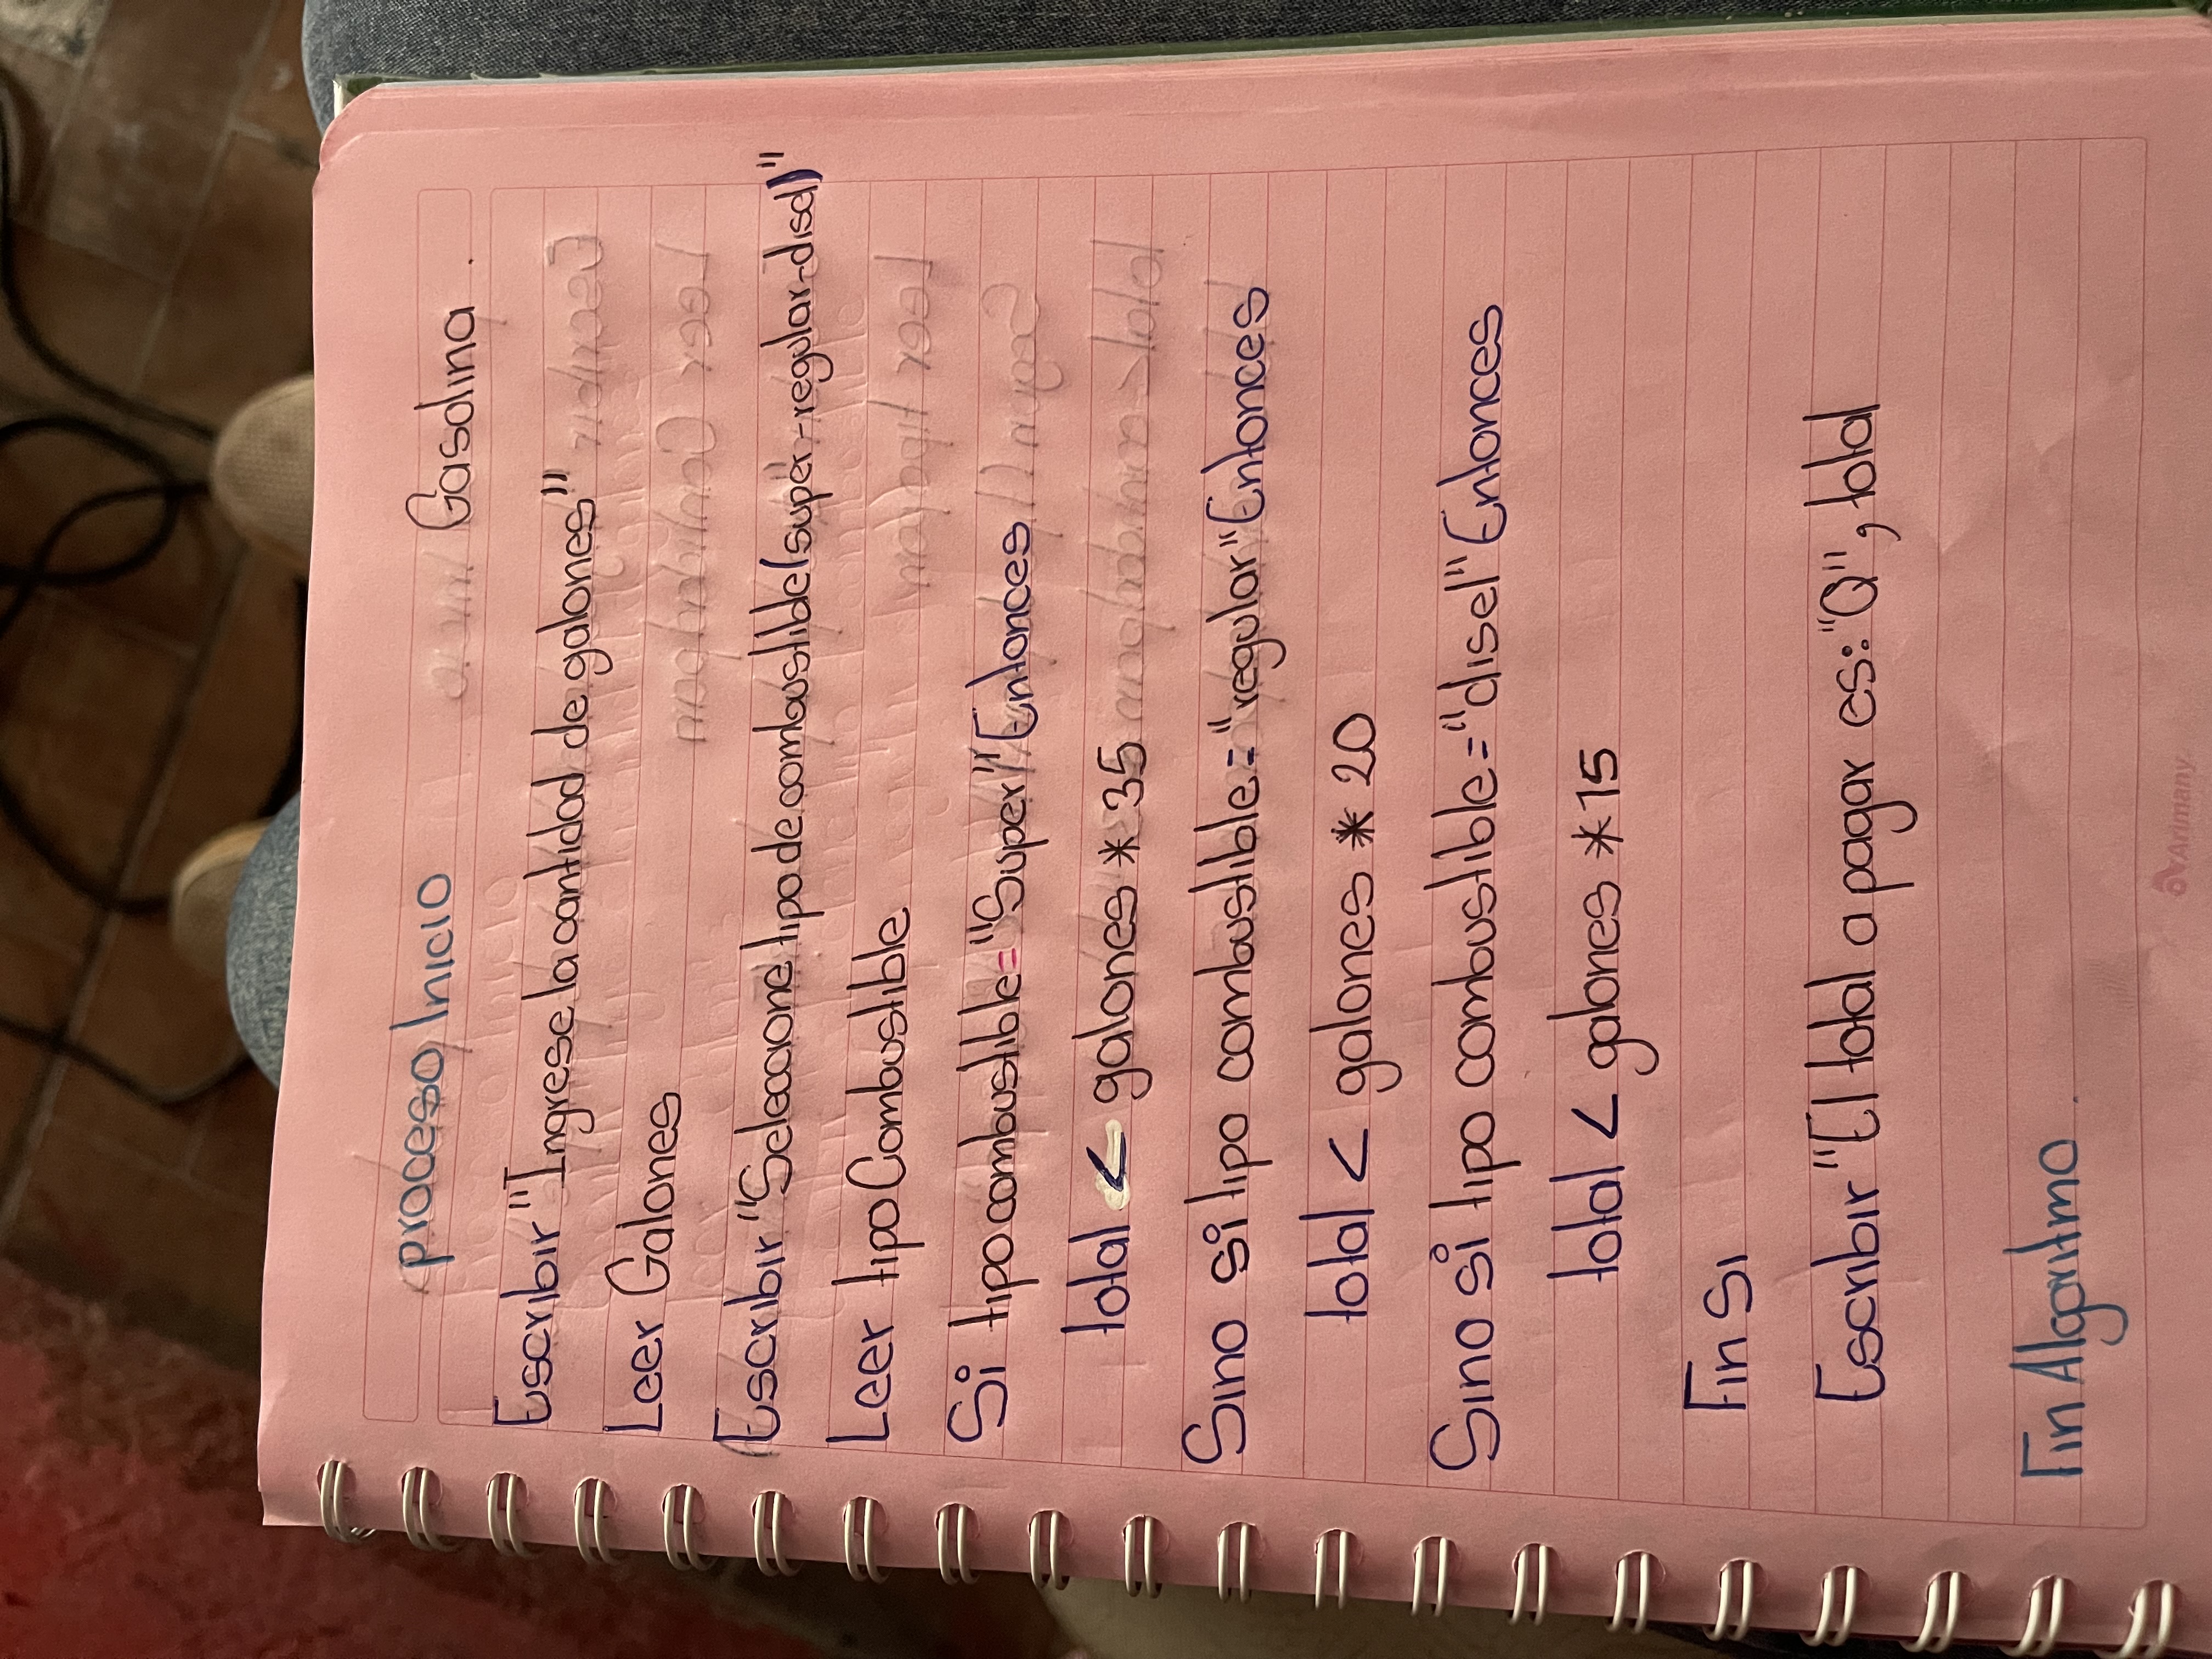 proceso Inicio Gasolina.
Escribir "Ingrese la cantidad de galones"
Leer Galones
Escribir "Seleccione tipo de combustible(super-regular-disel)"
Leer tipo Combustible
Si tipo combustible="Super" Entonces
total < galones * 35
Sino si tipo combustible="regular" Entonces
total < galones * 20
Sino si tipo combustible="disel" Entonces
total < galones * 15
Fin Si
Escribir "El total a pagar es: "Q", total
Fin Algoritmo.
Arimany